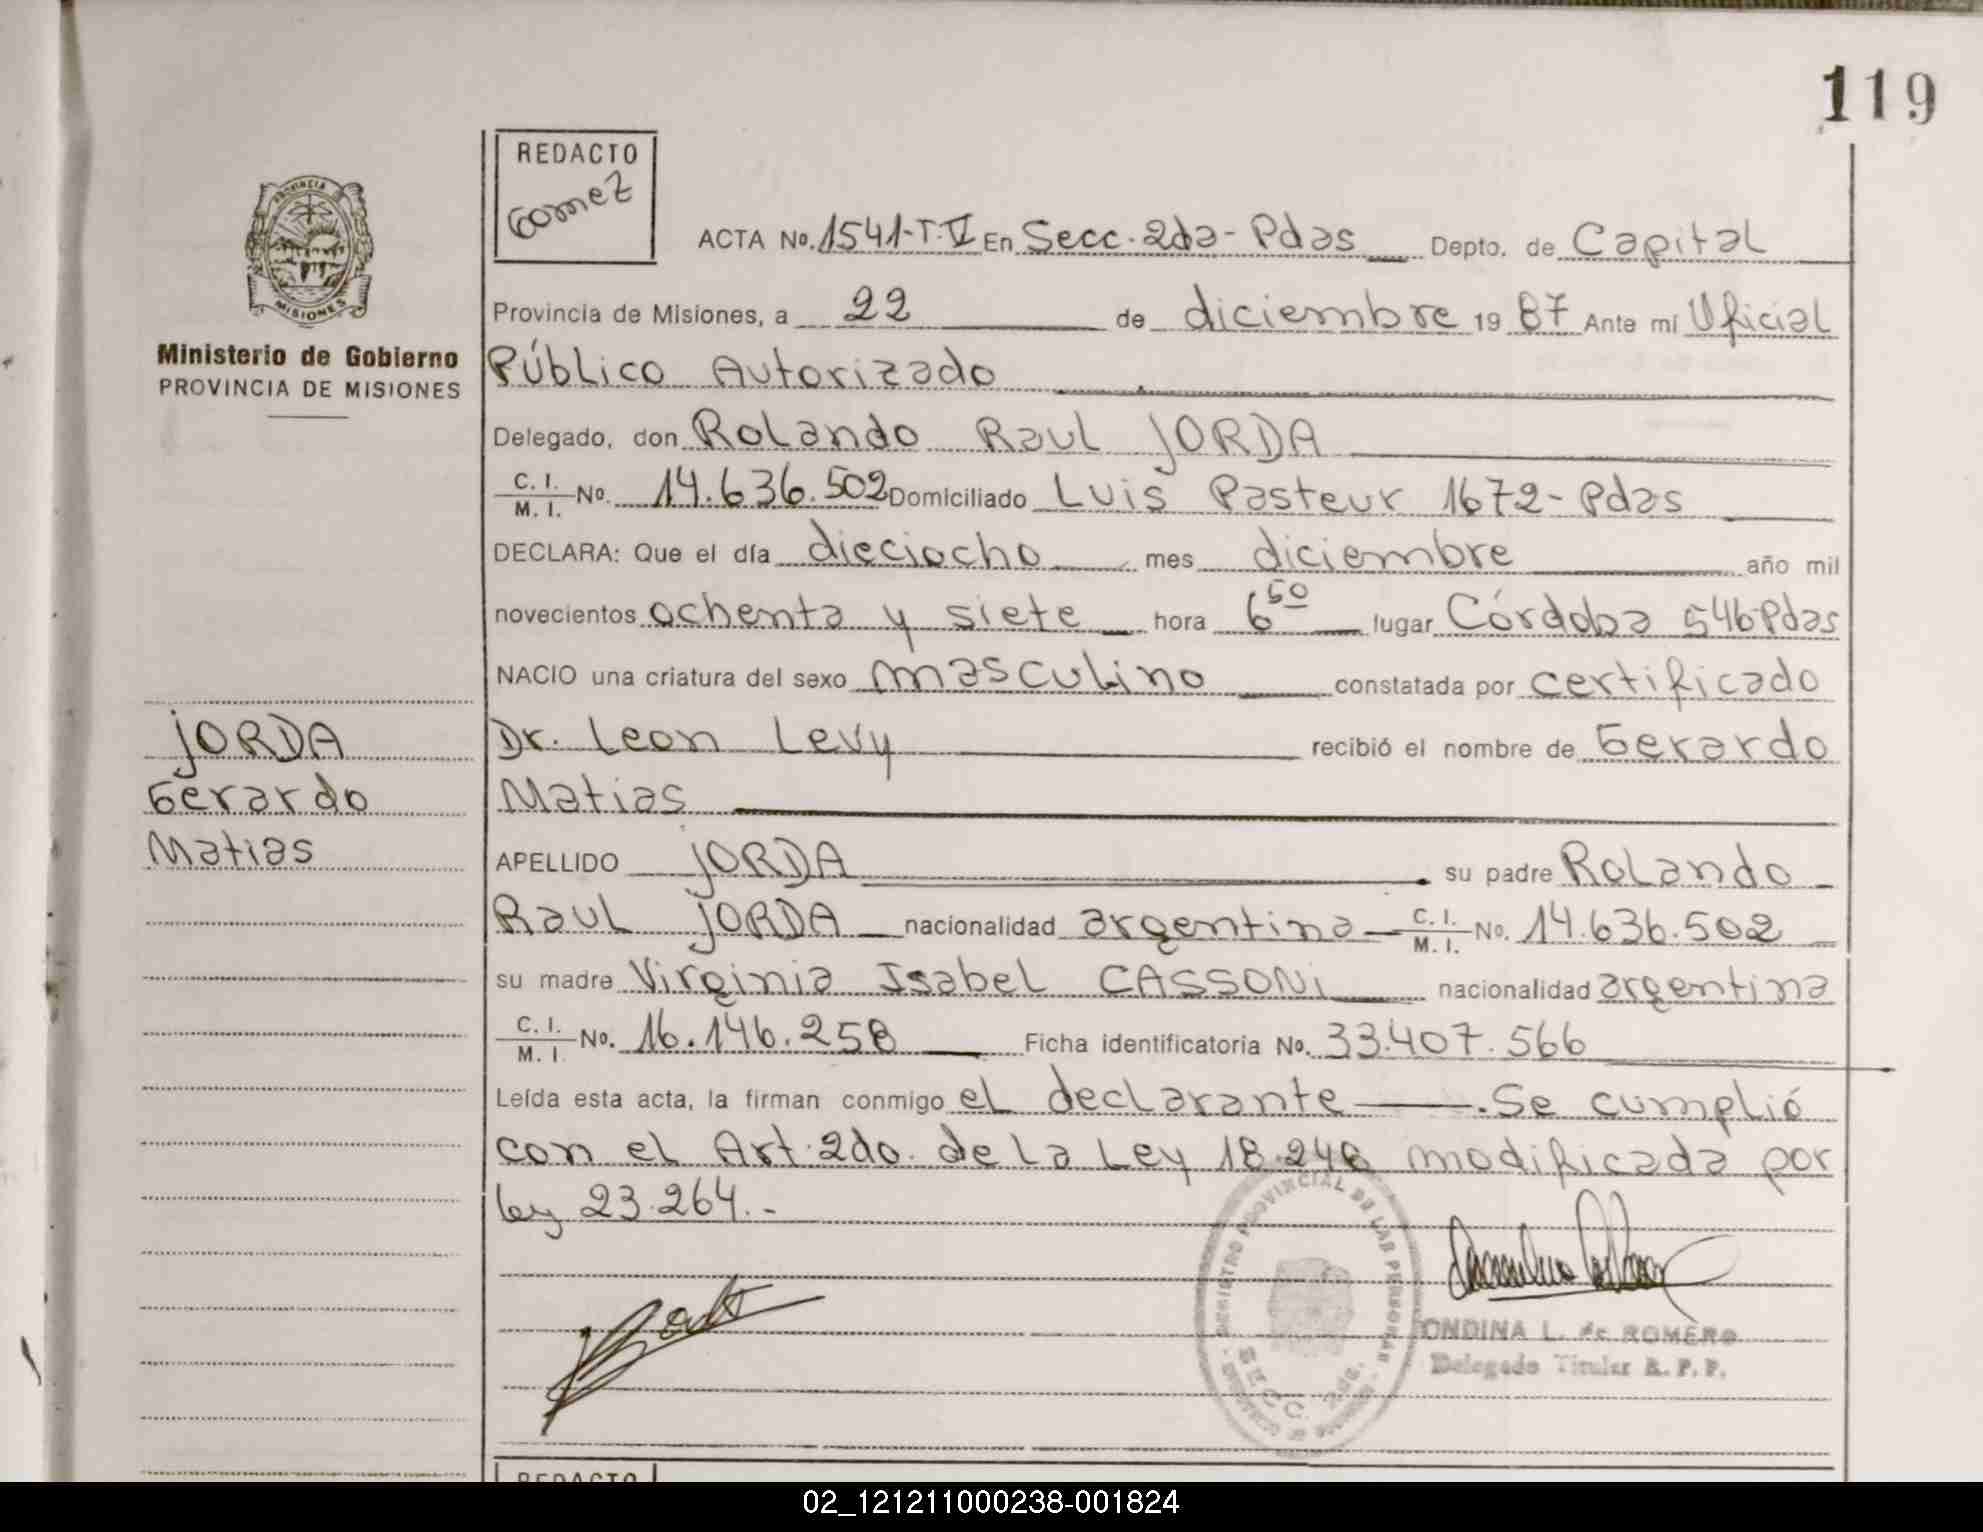 119
REDACTO
Gomez
ACTA No. 1541-T.V En Secc. 2da - Pdas Depto. de Capital
PROVINCIA
MISIONES
Ministerio de Gobierno
PROVINCIA DE MISIONES
Provincia de Misiones, a 22 de diciembre 19 87 Ante mí Oficial
Público Autorizado
Delegado, don Rolando Raul JORDA
C. I. M. I. No. 14.636.502 Domiciliado Luis Pasteur 1672 - Pdas
DECLARA: Que el día dieciocho mes diciembre año mil
novecientos ochenta y siete hora 6 50 lugar Córdoba 546 Pdas
NACIO una criatura del sexo masculino constatada por certificado
Dr. Leon Levy recibió el nombre de Gerardo
Matias
JORDA
Gerardo
Matias
APELLIDO JORDA su padre Rolando
Raul JORDA nacionalidad argentina C. I. M. I. No. 14.636.502
su madre Virginia Isabel CASSONI nacionalidad argentina
C. I. M. I. No. 16.146.258 Ficha identificatoria No. 33.407.566
Leída esta acta, la firman conmigo el declarante . Se cumplió
con el Art. 2do. de la Ley 18.248 modificada por
ley 23.264.-
REGISTRO PROVINCIAL DE LAS PERSONAS
SECC. 2da.
ONDINA L. de ROMERO
Delegado Titular R. P. P.
REDACTO
02_121211000238-001824